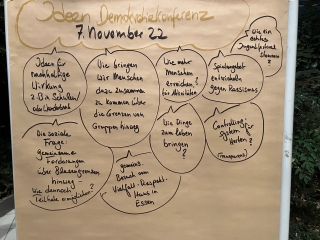 Ideen Demokratiekonferenz
7. November 22
Ideen für
nachhaltige
Wirkung
z.B. in Schulen/
Wie bringen
wir Menschen
dazu zusammen
zu kommen über
die Grenzen von
Gruppen hinweg
Wie mehr
Menschen
erreichen?
für Aktivitäten
Spielangebot
entwickeln
gegen Rassismus
Wie ein
echtes
Jugendforum
Die soziale
Frage:
gemeinsame
Forderungen
über Blasengrenzen
hinweg -
Wie dennoch
Teilhabe ermöglichen?
gemeins.
Besuch vom
Vielfalt-Respekt-
Haus in
Essen
Wie Dinge
zum Leben
bringen
?
Controlling-
System für
Werten?
(Transparenz)